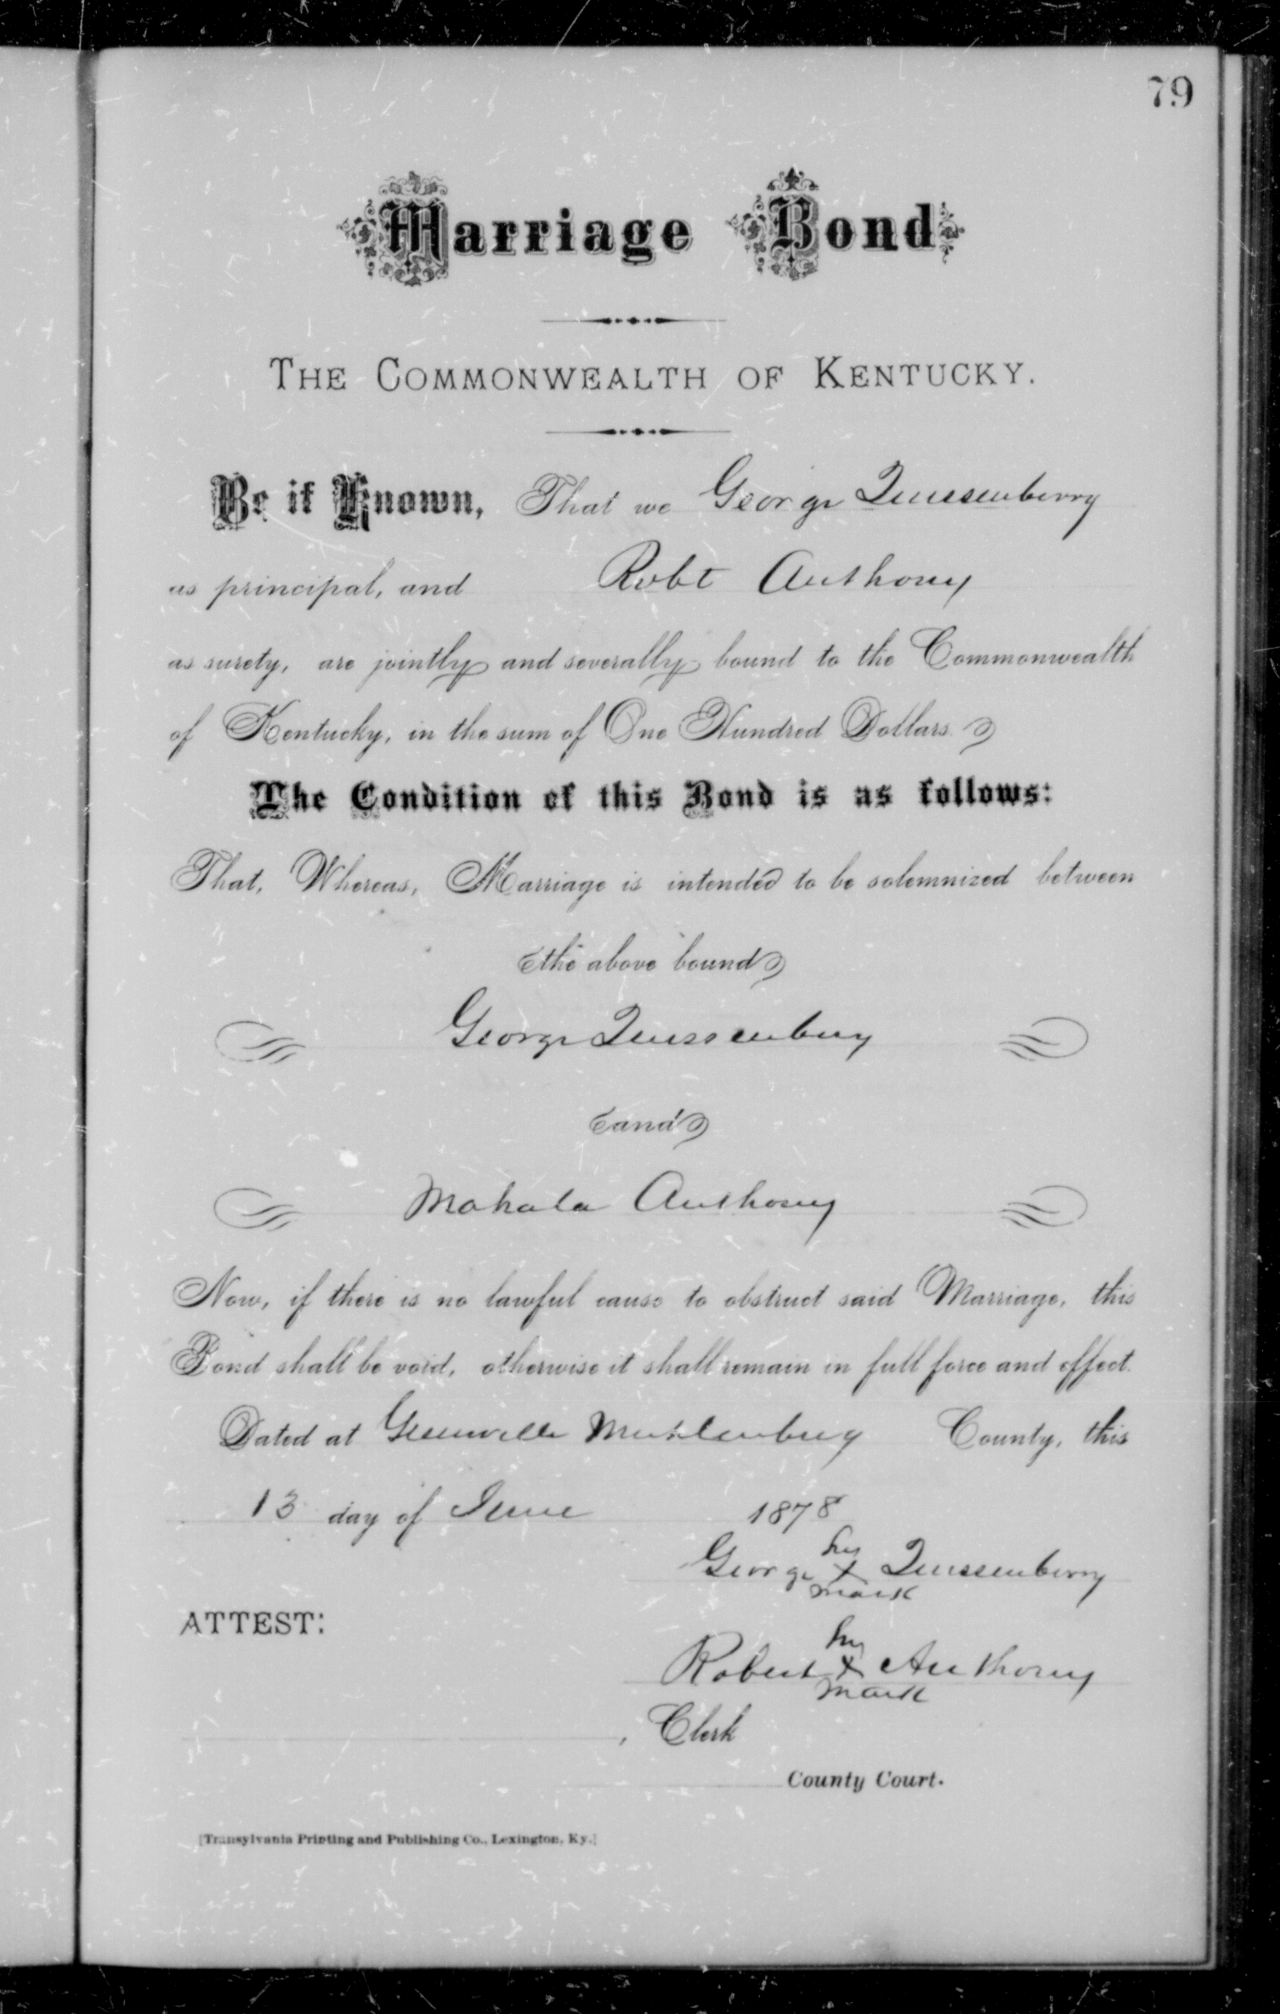 79
Marriage Bond
THE COMMONWEALTH OF KENTUCKY.
Be it Known, That we George Quissenberry
as principal, and Robt Anthony
as surety, are jointly and severally bound to the Commonwealth
of Kentucky, in the sum of One Hundred Dollars.
The Condition of this Bond is as follows:
That, Whereas, Marriage is intended to be solemnized between
the above bound
George Quissenbury
and
Mahala Anthony
Now, if there is no lawful cause to obstruct said Marriage, this
Bond shall be void, otherwise it shall remain in full force and effect.
Dated at Greenville Muhlenburg County, this
13 day of June 1878
George his x mark Quissenberry
ATTEST:
Robert his x mark Anthony
, Clerk
County Court.
[Transylvania Printing and Publishing Co., Lexington, Ky.]